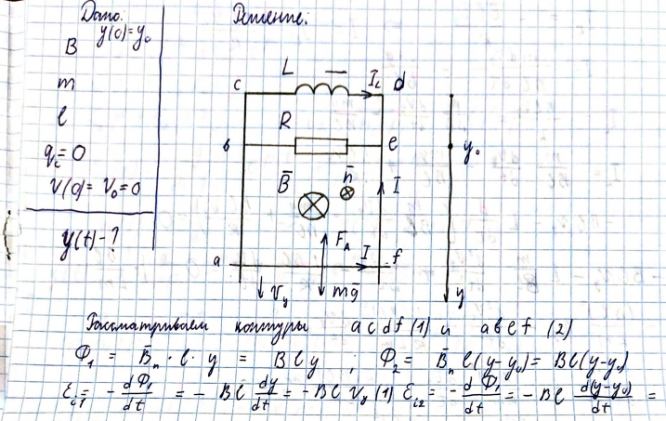 Дано: Решение:
y(0)=y₀
B
m
l
q_c=0
V(0)=V₀=0
y(t)-?
c L I_L d
R
b e y₀
B̄ n̄
I
F_A
a I f
V_y mḡ y
Рассматриваем контуры acdf (1) и abef (2)
Φ₁ = B̄ₙ · l · y = Bly ; Φ₂ = B̄ₙ l(y-y₀) = Bl(y-y₀)
ℰ_i1 = -dΦ₁/dt = -Bl dy/dt = -Bl V_y (1) ℰ_i2 = -dΦ₁/dt = -Bl d(y-y₀)/dt =